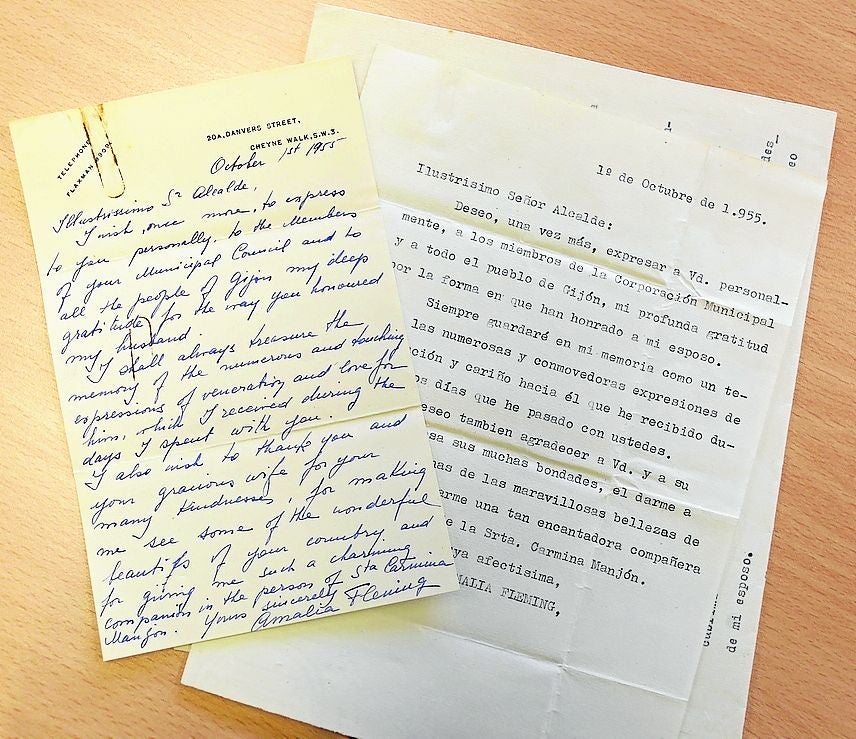 TELEPHONE
FLAXMAN
20A, DANVERS STREET,
CHEYNE WALK, S.W.3.
October 1st 1955
Illustrissimo Sr Alcalde,
I wish, once more, to express
to you personally, to the Members
of your Municipal Council and to
all the people of Gijon my deep
gratitude for the way you honoured
my husband.
I shall always treasure the
memory of the numerous and touching
expressions of veneration and love for
him, which I received during the
days I spent with you.
I also wish to thank you and
your gracious wife for your
many kindnesses, for making
me see some of the wonderful
beautifs of your country and
for giving me such a charming
companion in the person of Sta Carmina
Manjon. Yours sincerely
Amalia Fleming
1º de Octubre de 1.955.
Ilustrísimo Señor Alcalde:
Deseo, una vez más, expresar a Vd. personal-
mente, a los miembros de la Corporación Municipal
y a todo el pueblo de Gijón, mi profunda gratitud
por la forma en que han honrado a mi esposo.
Siempre guardaré en mi memoria como un te-
las numerosas y conmovedoras expresiones de
ción y cariño hacia él que he recibido du-
os días que he pasado con ustedes.
eseo tambien agradecer a Vd. y a su
sa sus muchas bondades, el darme a
nas de las maravillosas bellezas de
erme una tan encantadora compañera
e la Srta. Carmina Manjón.
ya afectisima,
MALIA FLEMING,
des-
eo
de mi esposo.